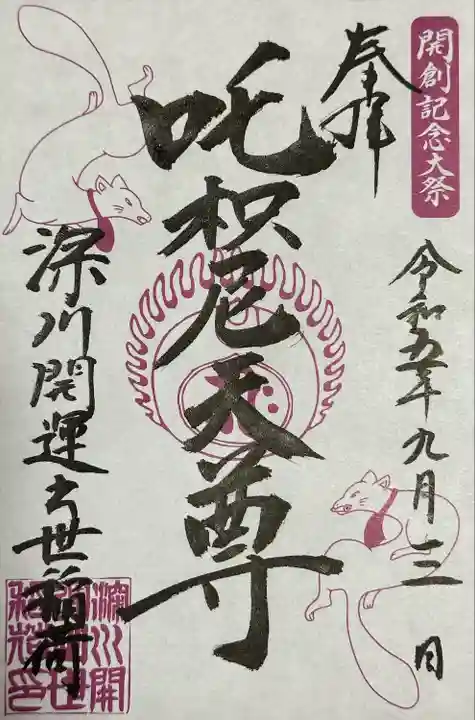 開創記念大祭
奉拝
令和五年九月 日
吒枳尼天尊
深川開運出世稲荷